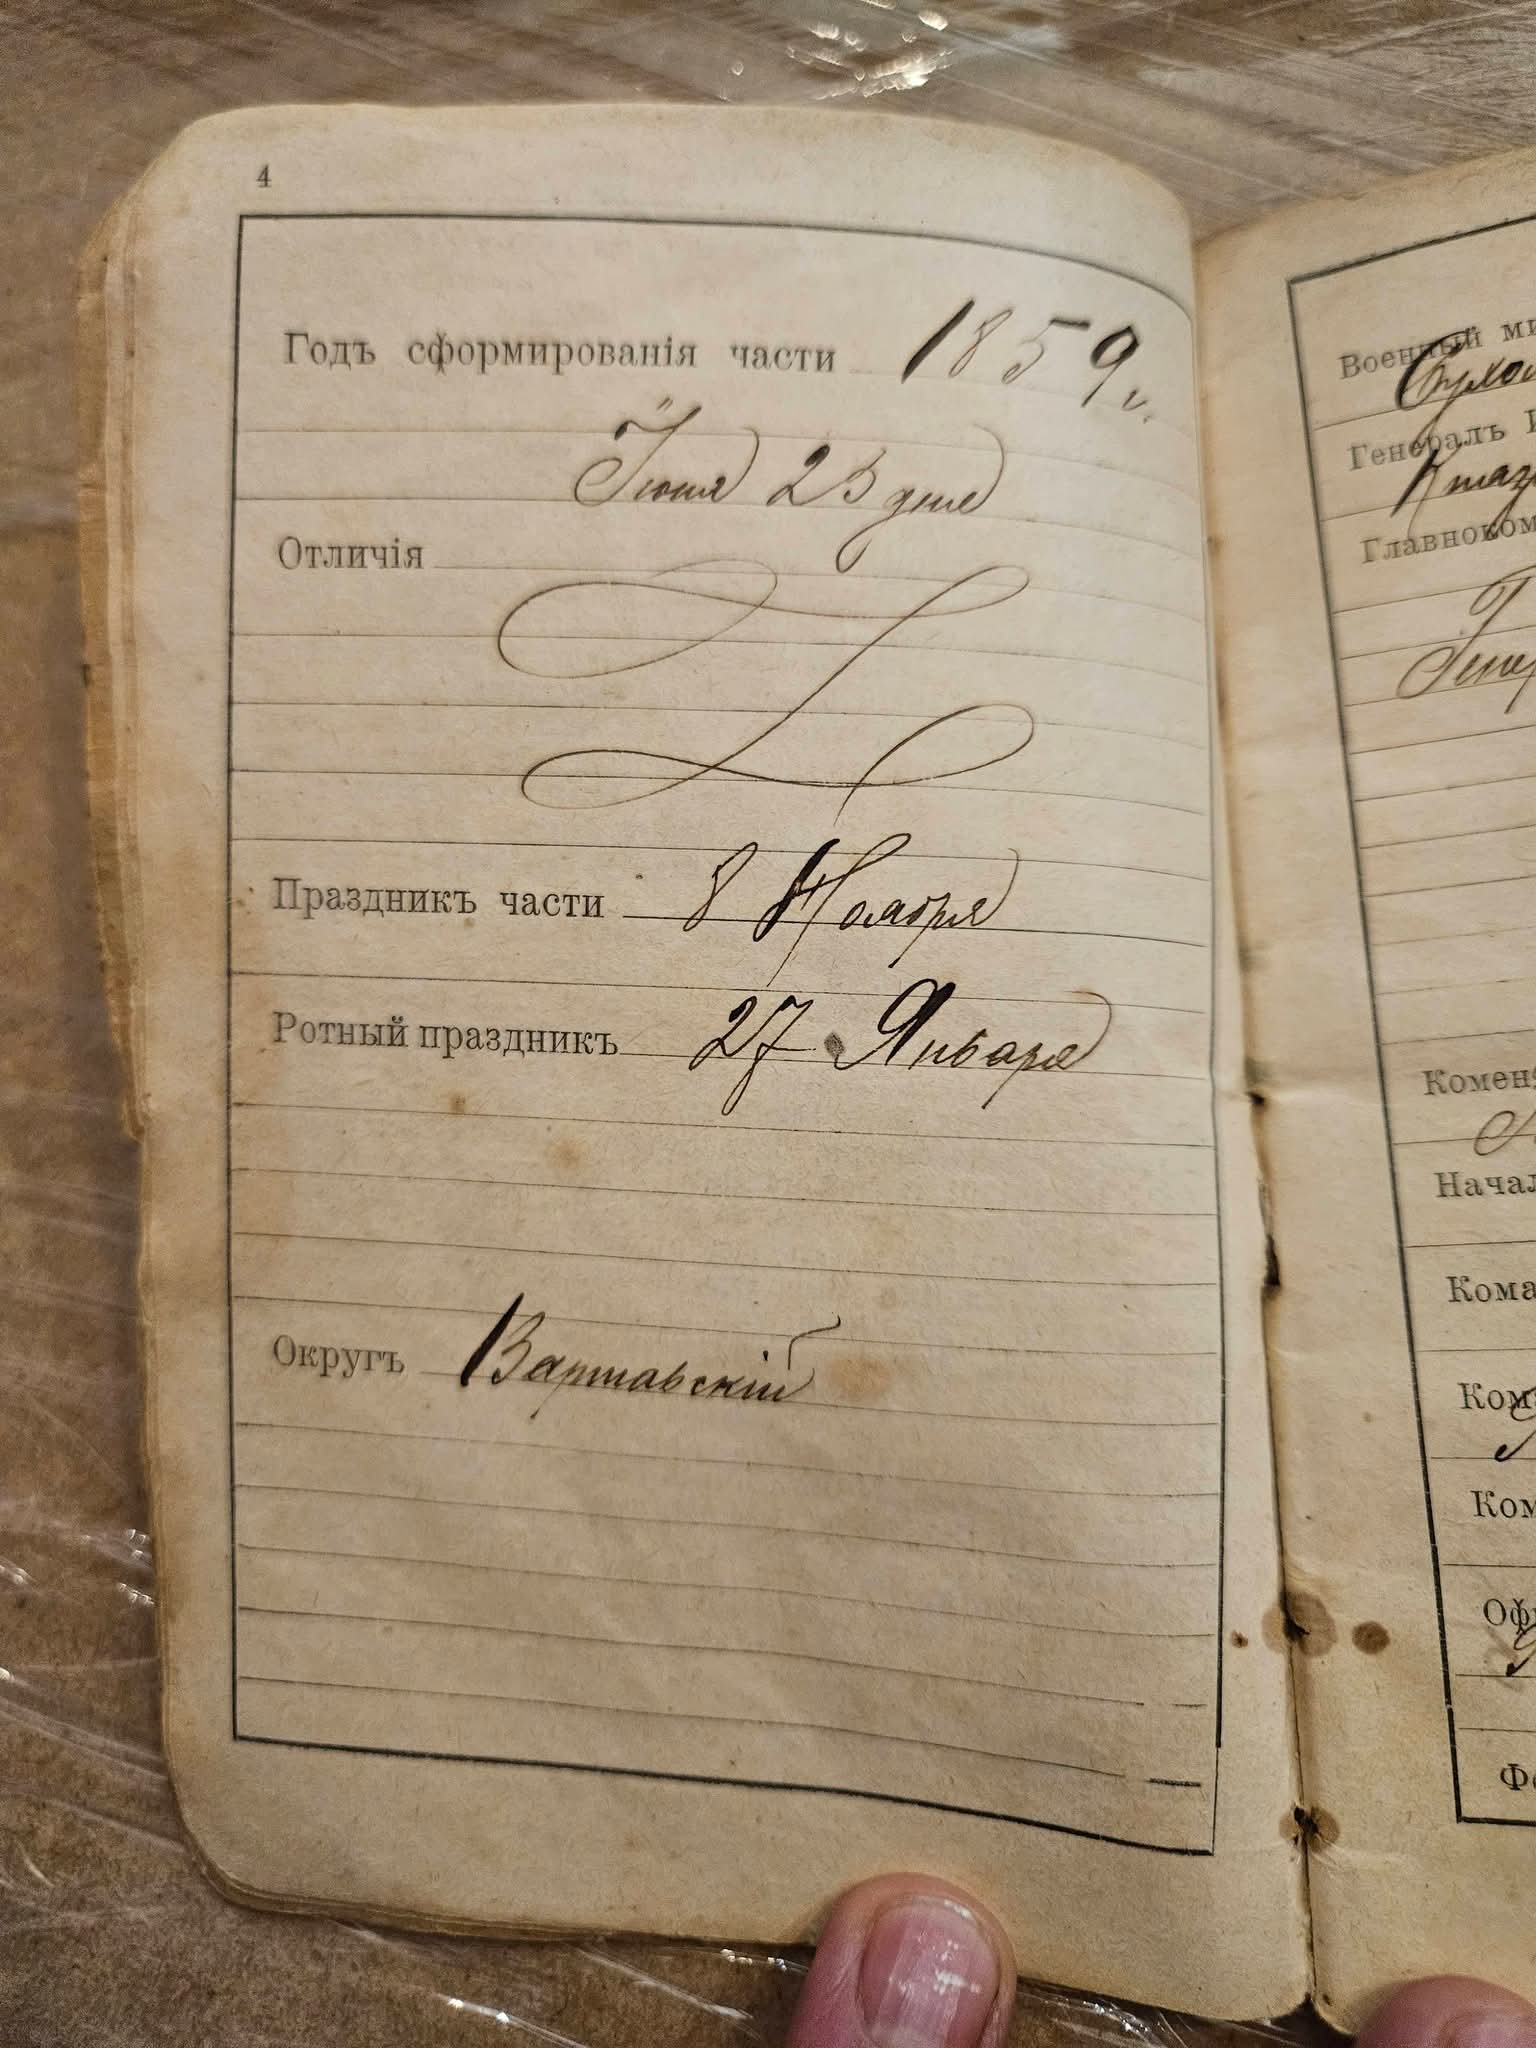 4
Годъ сформированія части 1859 г.
Іюня 25 дня
Отличія
Праздникъ части 8 Ноября
Ротный праздникъ 27 Января
Округъ Варшавскій
Военный ми
Сухом
Генералъ И
Главноком
Генер
Комен
Начал
Кома
Кома
Ком
Офи
Фе